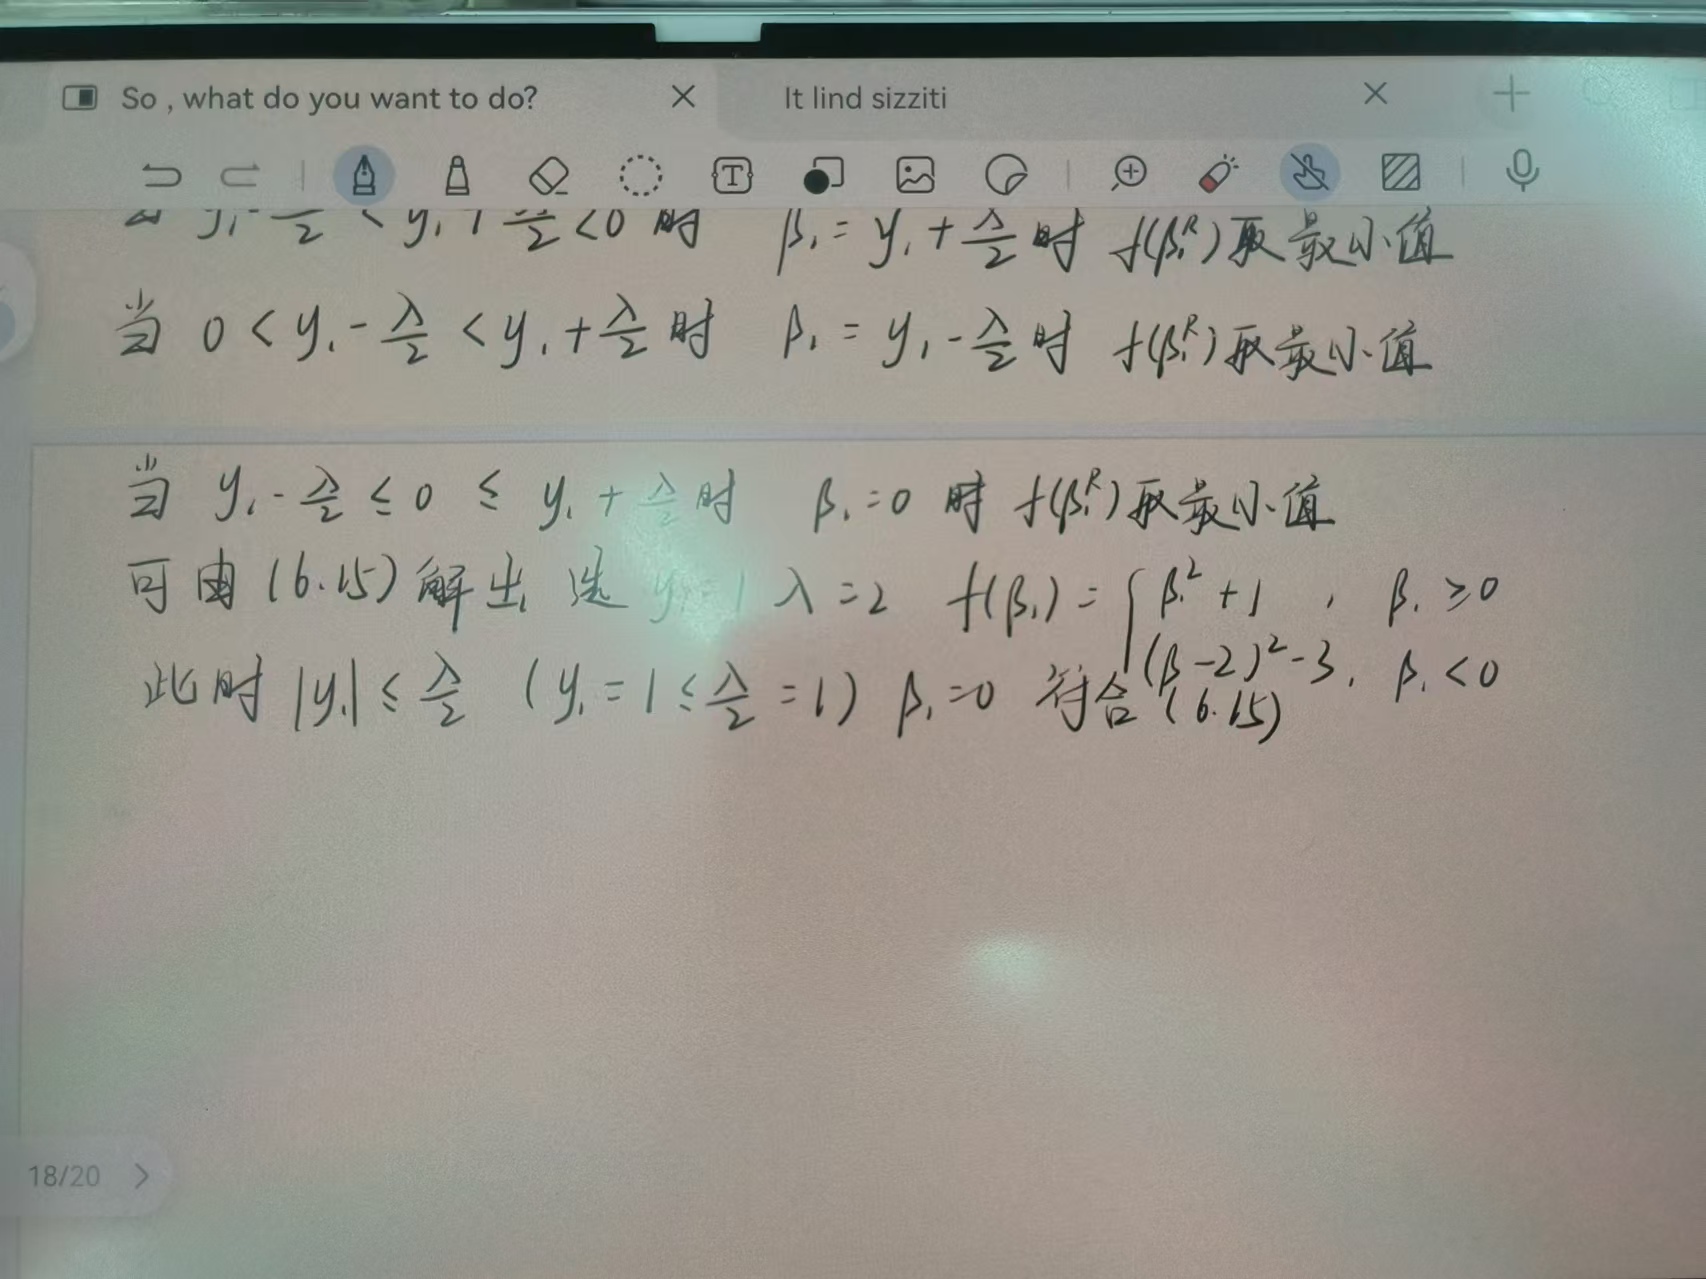 So , what do you want to do?
It lind sizziti
当 y₁ - λ/2 < y₁ + λ/2 < 0 时 β₁ = y₁ + λ/2 时 f(β₁ᴿ) 取最小值
当 0 < y₁ - λ/2 < y₁ + λ/2 时 β₁ = y₁ - λ/2 时 f(β₁ᴿ) 取最小值
当 y₁ - λ/2 ≤ 0 ≤ y₁ + λ/2 时 β₁ = 0 时 f(β₁ᴿ) 取最小值
可由 (6.15) 解出, 选 y₁ = 1 λ = 2 f(β₁) = { β₁² + 1 , β₁ ≥ 0
(β - 2)² - 3 , β₁ < 0
此时 |y₁| ≤ λ/2 ( y₁ = 1 ≤ λ/2 = 1 ) β₁ = 0 符合 (6.15)
18/20